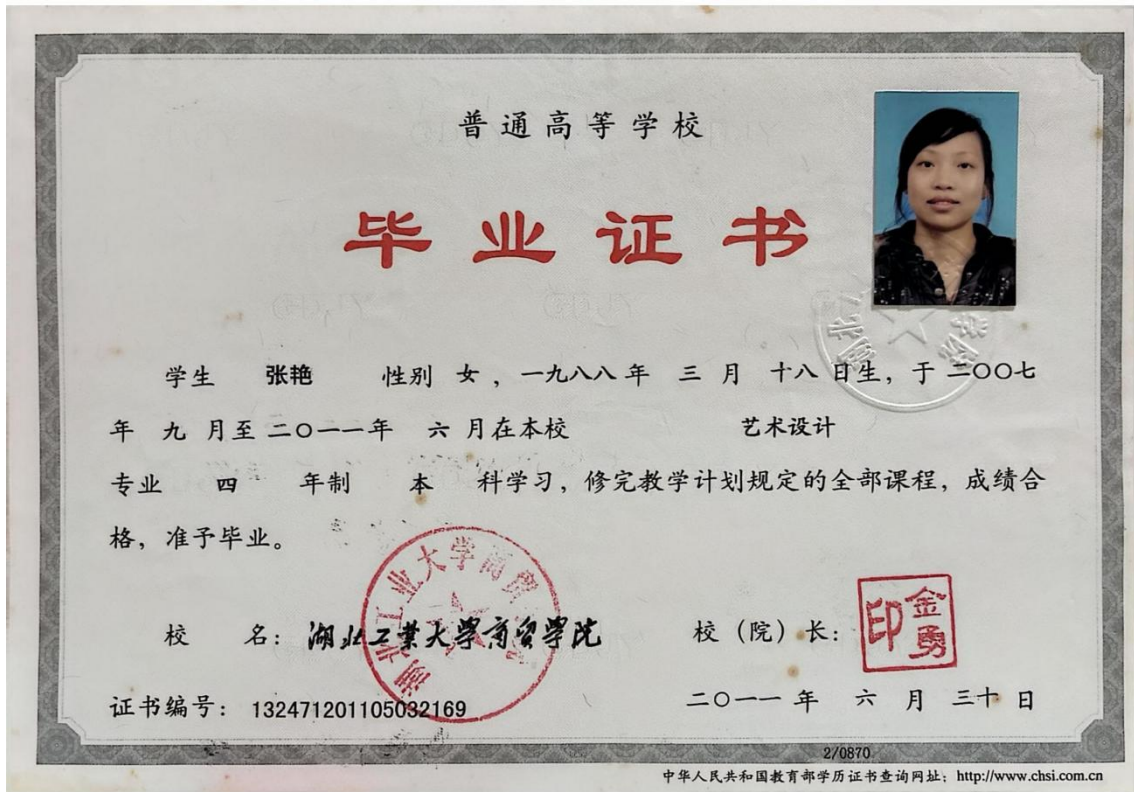 普通高等学校
毕业证书
学生 张艳 性别 女，一九八八年 三 月 十八日生，于二〇〇七
年 九 月至二〇一一年 六 月在本校 艺术设计
专业 四 年制 本 科学习，修完教学计划规定的全部课程，成绩合
格，准予毕业。
湖北工业大学商贸学院
校 名：湖北工业大学商贸学院 校（院）长：金勇印
证书编号：132471201105032169 二〇一一年 六 月 三十 日
2/0870
中华人民共和国教育部学历证书查询网址：http://www.chsi.com.cn